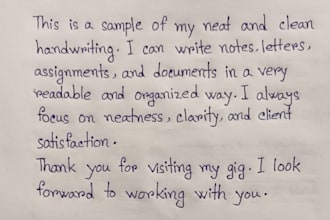 This is a sample of my neat and clean
handwriting. I can write notes, letters,
assignments, and documents in a very
readable and organized way. I always
focus on neatness, clarity, and client
satisfaction.
Thank you for visiting my gig. I look
forward to working with you.